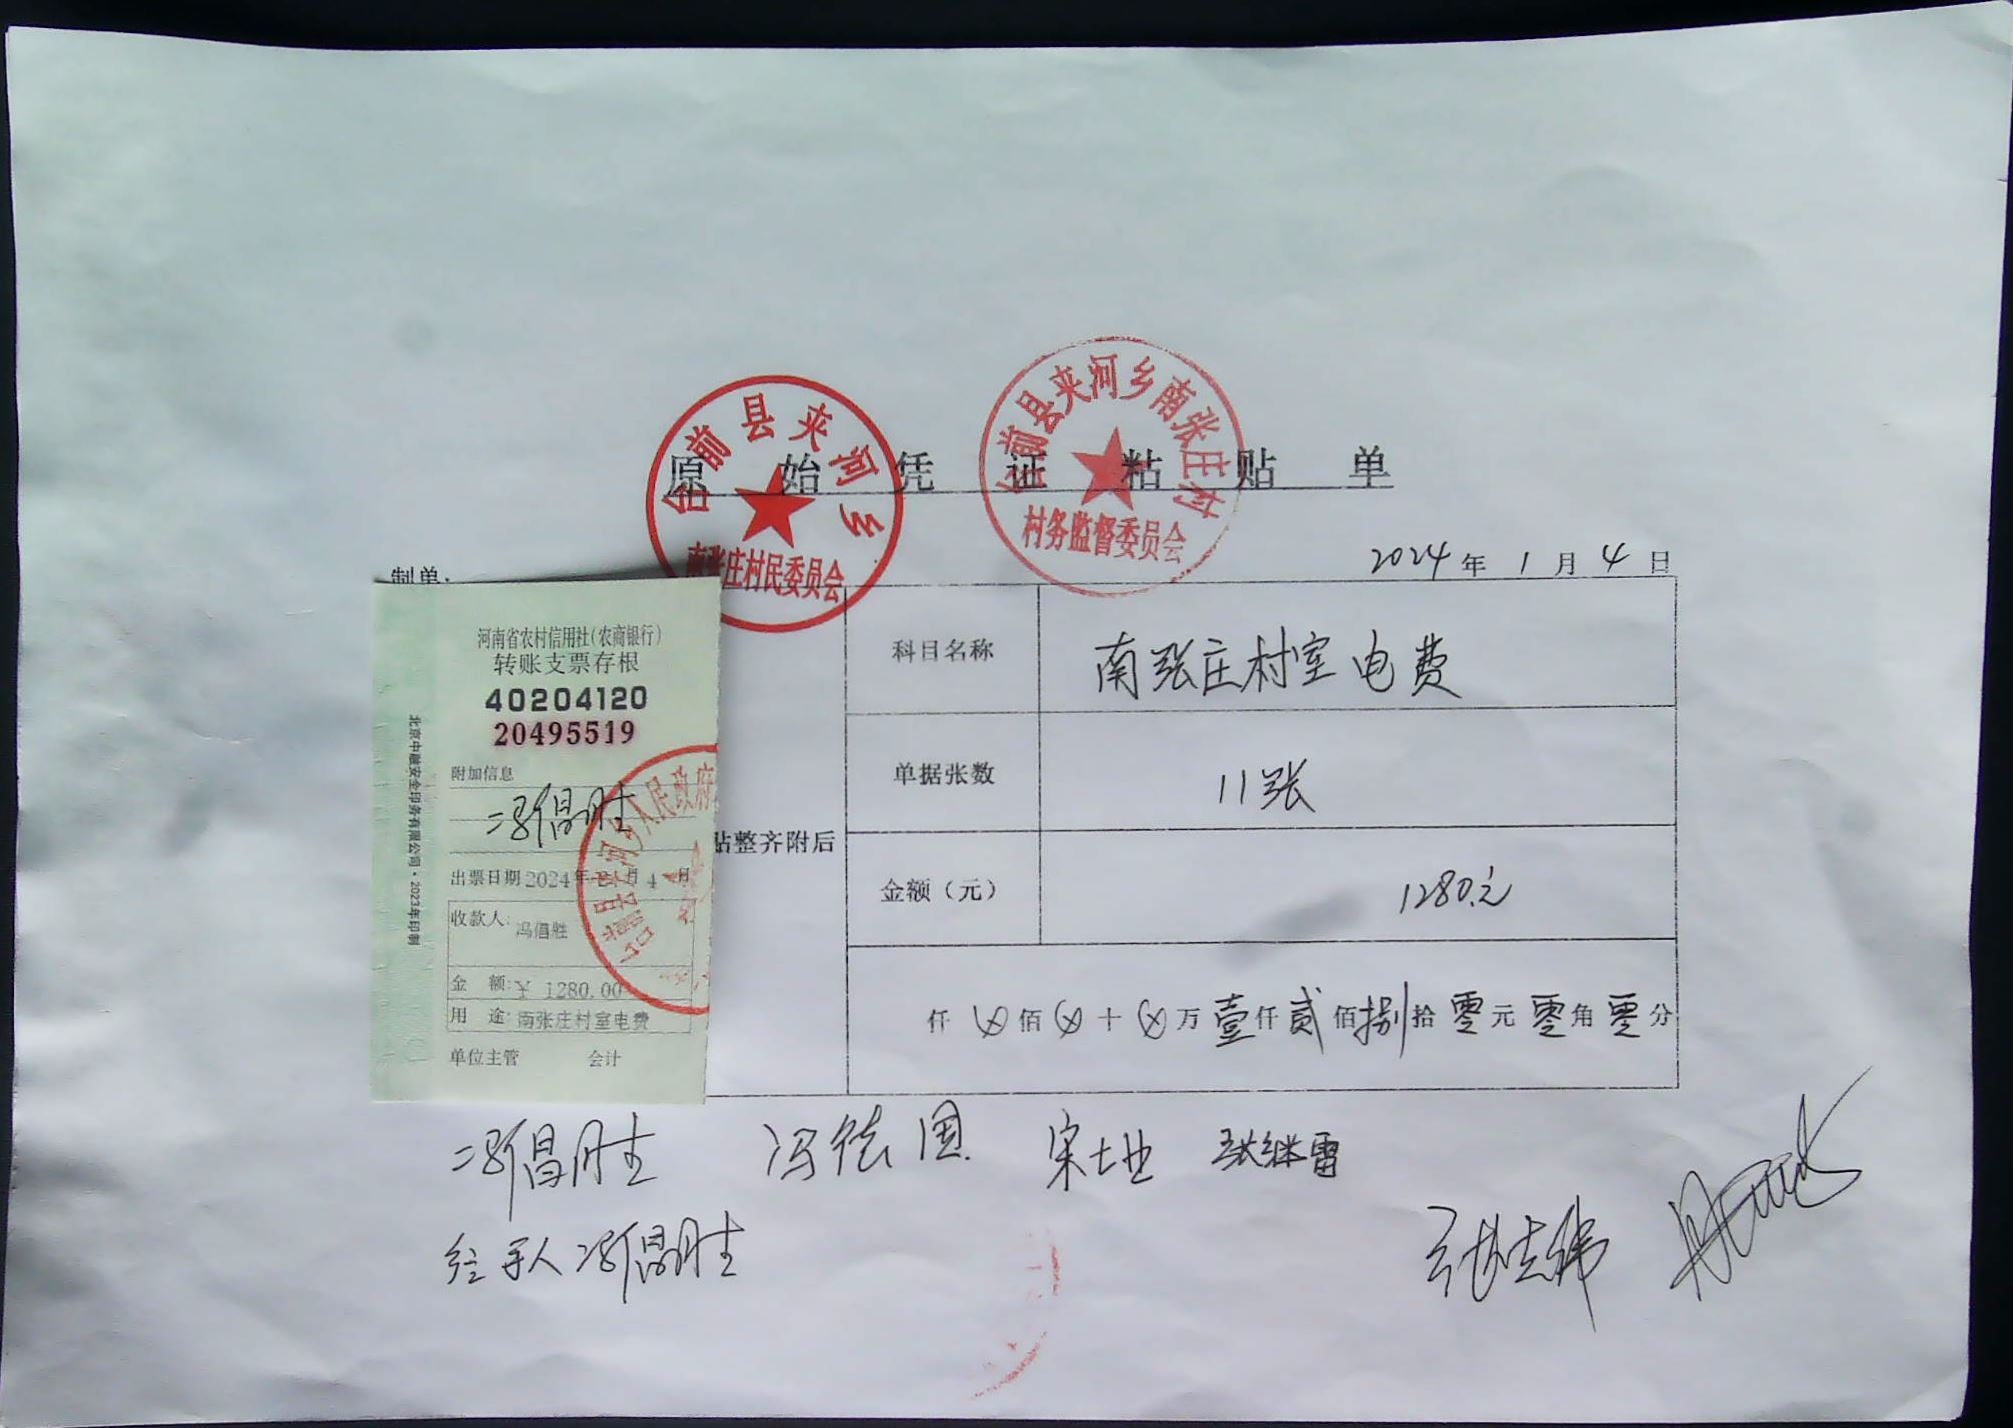 台前县夹河乡
南张庄村民委员会
台前县夹河乡南张庄村
村务监督委员会
原始凭证粘贴单
2024年1月4日
制单:
河南省农村信用社(农商银行)
转账支票存根
40204120
20495519
附加信息
冯倡胜
出票日期2024年01月4日
收款人:冯倡胜
金额:¥ 1280.00
用途:南张庄村室电费
单位主管 会计
北京中融安全印务有限公司·2023年印制
台前县夹河乡人民政府
贴整齐附后
科目名称 南张庄村室电费
单据张数 11张
金额（元） 1280元
仟⊗佰⊗十⊗万壹仟贰佰捌拾零元零角零分
冯倡胜 冯德国 宋士业 张继雷
经手人冯倡胜
张志伟